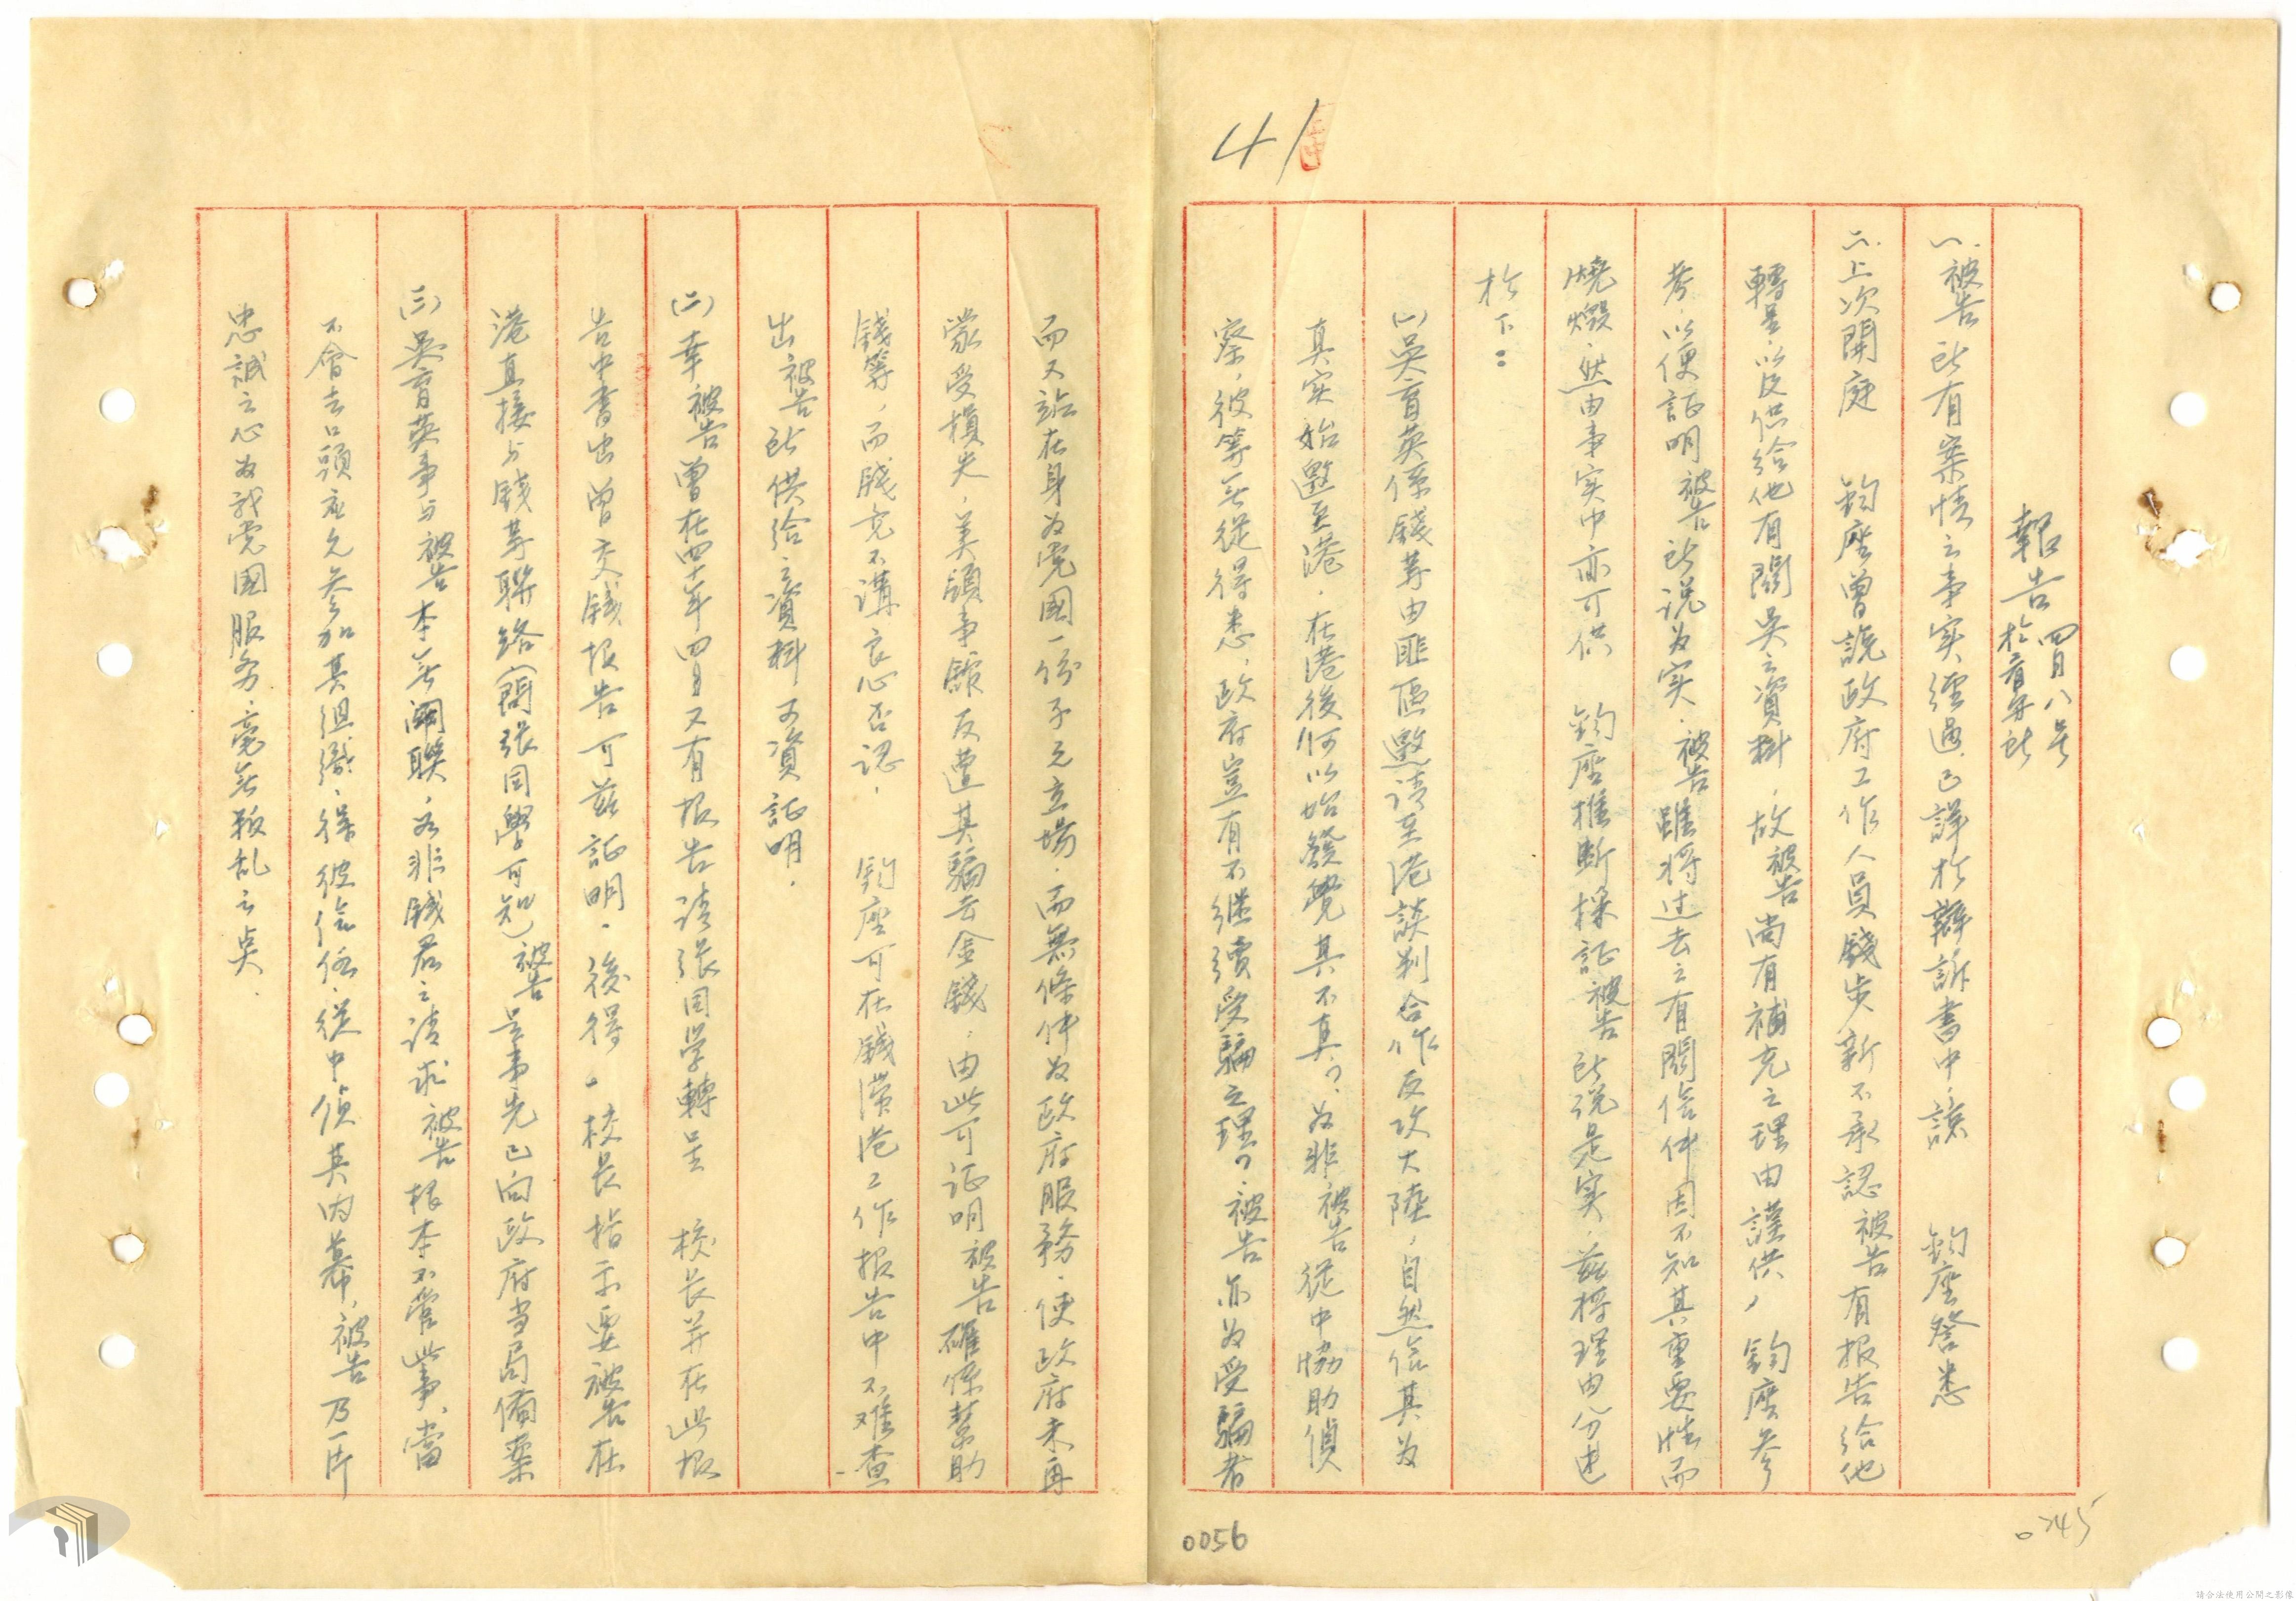 41
報告 四月八号
於看守所
一、被告所有案情之事实經過,已詳於辯訴書中,諒 鈞座詧悉
二、上次開庭 鈞座曾說政府工作人員錢步新不承認被告有报告給他
轉呈,以及供給他有關吳之資料,故被告尚有補充之理由謹供, 鈞座参
考,以便証明被告所說为实,被告雖将过去之有關信件因不知其重要性而
燒燬,然由事实中亦可供 鈞座推断採証被告所說是实,茲将理由分述
於下:
(一)吳育英係錢等由匪區邀请至港談判合作反攻大陸,自然信其为
真实始邀至港,在港後何以始發覺其不真?,为非被告從中協助偵
察,彼等無從得悉,政府豈有不继续受騙之理?,被告亦为受騙者
而又站在身为党國一份子之立場,而無條件为政府服務,使政府未再
蒙受損失,美領事館反遭其騙去金錢,由此可证明被告確係幫助
錢等,而錢竟不講良心否認, 鈞座可在錢滞港工作报告中不难查
出被告所供給之資料可資証明.
(二)幸被告曾在四十年四月又有报告请张同学轉呈 校长并在此报
告中書出曾交錢报告可茲証明.後得 校长指示要被告在
港直接与錢等聯络(問张同學可知)被告是事先已向政府当局備案
(三)吳育英事与被告本無關聯,为非錢君之请求被告根本不管此事,當
不會去口頭应允参加其組織,得彼信任,從中偵其内幕,被告乃一片
忠誠之心为我党國服务,毫無叛乱之点.
0056
0745
請合法使用公開之影像